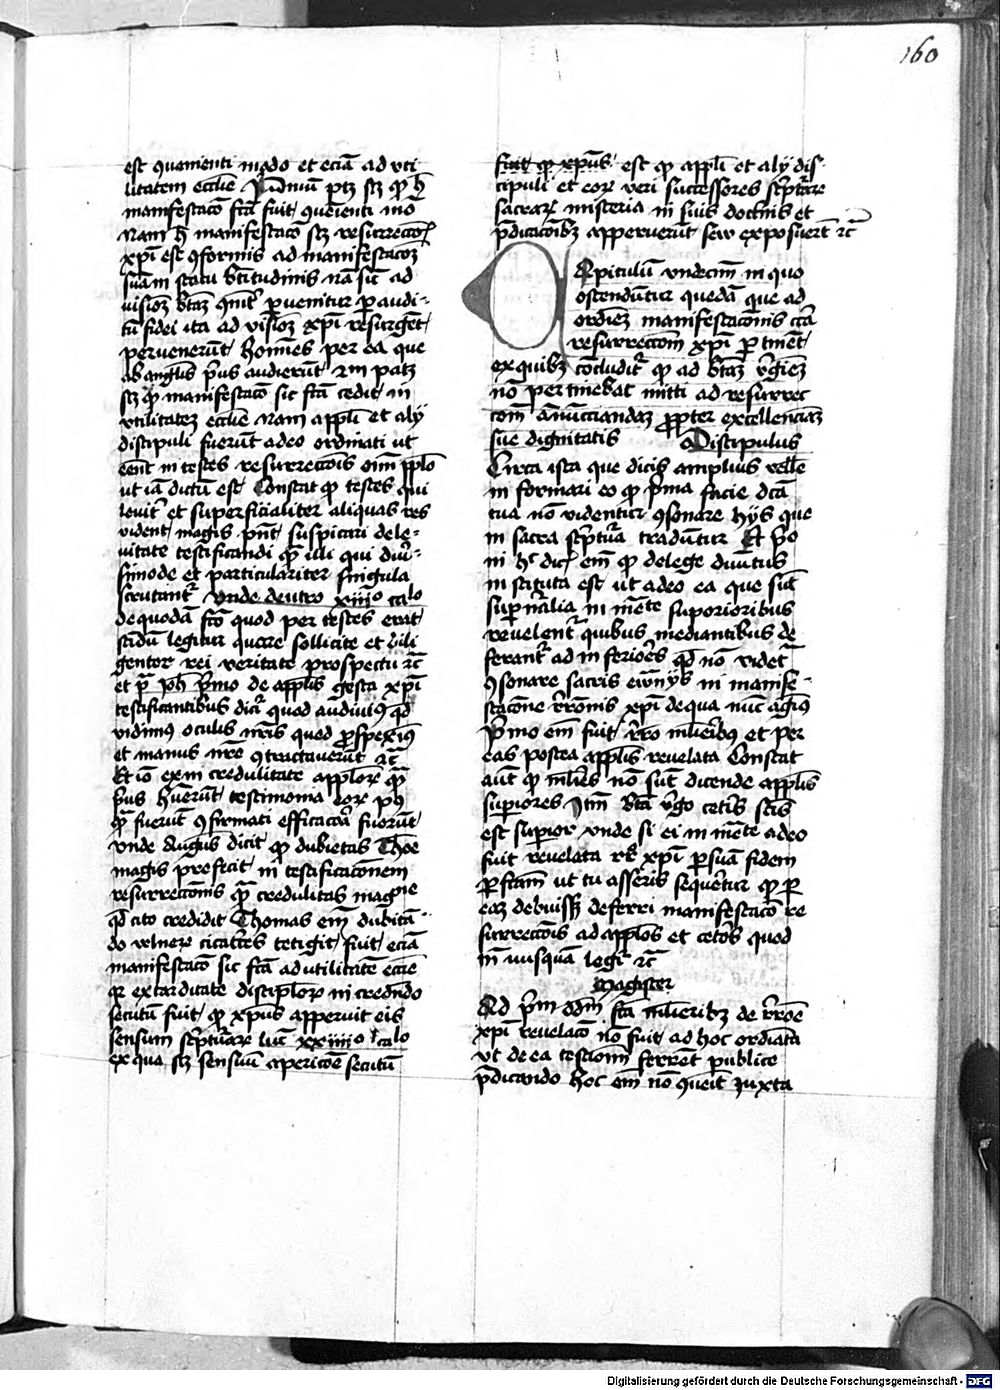 160
est quenienti modo et eciā ad vti
litatem ecclie Primū ptz scz qp h̄
manifestacō fcā fuit quēienti mō
Nam h̄ manifestacō scz resurreccōs
xp̄i est ꝯformis ad manifestacōz
suam statu btitudinis nā sic ad
visiōz btāz ꝑuenitur ꝑ audi-
tū fidei ita ad visiōz xp̄i resurgent
peruenerūt homines per ea que
ab anglis prius audierūt Itm patz
scz qp manifestacō sic fcā cedit in
vtilitatez ecclie Nam appli et alÿ
discipuli fuerūt adeo ordinati ut
eent in testes resurreccōis oīm pplo
ut iā dictū est Constat qp testes qui
leuit et superficialiter aliquas res
vident magis pnt suspicari de le-
uitate testificandi qꝫ illi qui diu-
simode et particulariter singula
scrutant Unde deutro xiiiio calo
de quodā fcō quod per testes erat
scidū legitur quere sollicite et dili
gentor rei veritate prospectu rc̄
et
testificantibus dicit quod audiuimus qd
vidimus oculis nr̄is quod ꝑspeximus
et manus nr̄e ꝯtractauerūt rc̄
Et iō ex in credulitate applorꝫ
prius huerūt testimonia eorꝫ
qꝫ fuerūt ꝯfirmati efficacia fuerūt
vnde Augus dicit qp dubietas Thōe
magis prefecit in testificatōnem
resurreccōnis qꝫ credulitas magne
qd cito credidit Thomas em̄ dubitā-
do vlnerꝫ cicatrices tetigit fuit eciā
manifestacō sic fcā ad utilitatē eccie
qꝛ ex tarditate disciplorꝫ in credendo
secutū fuit qp xp̄us apperuit eis
sensum scpturarꝫ luc̄ xxiiiio calo
ex qua scz sensuū apericōe secutū
fuit qp xp̄us est qp appli et alÿ dis-
cipuli et eorꝫ veri successores scpturae
sacrarꝫ misteria in suis doctnis et
p̄dicacōibꝫ apperuerūt seu exposuerūt rc̄
Capitulū vndecim in quo
ostenduntur quedā que ad
ordiez manifestacōnis circa
resurreccōm xp̄i ꝑtinēt
ex quibꝫ cōcluditur qp ad btāz vgīez
nō pertinebat mitti ad resurrec
cōm anucciandaz ꝓpter excellenciaz
sue dignitatis Discipulus
Circa ista que dicis amplius velle
in formari eo qp prima facie dcā
tua nō videntur ꝯsonare hÿs que
in sacra scptura traduntur Et
in hoc dic em̄ qp de lege diuinitus
in stituta est ut adeo ea que sūt
supnālia in mēte suporioribus
reuelent quibus mediantibus de
ferant ad in feriores qd nō videt
ꝯsonare sacris ewnÿs in manife-
stacōne rr̄onis xp̄i de qua nūc agimus
primo em̄ fuit rr̄o mlieribꝫ et per
eas postea applis reuelata Constat
aut qp mlies nō sūt dicende applis
superiores Itm btā vgo ceteris scis
est superior vnde si ei in mēte adeo
fuit reuelata rr xp̄i ꝑ suā fidem
ꝑfcām ut tu asseris sequetur qp ꝑ
eaz debuisset deferri manifestacō re
surreccōis ad applos et ceteros quod
tn̄ nusquā legit rc̄
Magister
Ad prim ddm̄ fcā mlieribꝫ de rr̄oē
xp̄i reuelacō nō fuit ad hoc ordiāta
vt de ea testiom ferrēt publice
p̄dicando hoc em̄ nō quēit Juxta
Digitalisierung gefördert durch die Deutsche Forschungsgemeinschaft - DFG